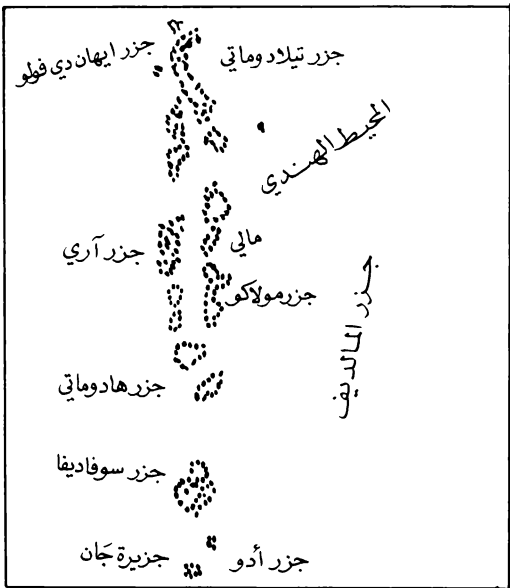 جزر ايهان دي فولو
جزر تيلادوماتي
المحيط الهندي
مالي
جزر آري
جزر مولاكو
جزر المالديف
جزر هادوماتي
جزر سوفاديفا
جزر أدو
جزيرة جَان